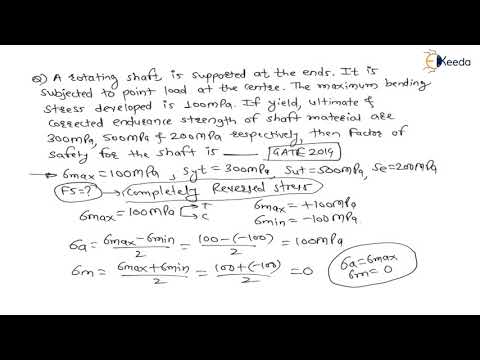 Keeda
Q) A rotating shaft is supported at the ends. It is
subjected to point load at the centre. The maximum bending
stress developed is 100MPa. If yield, ultimate &
corrected endurance strength of shaft material are
300MPa, 500MPa & 200MPa respectively, then Factor of
safety for the shaft is ______ GATE 2014
→ σmax = 100MPa, Syt = 300MPa, Sut = 500MPa, Se = 200MPa
FS = ? → Completely Reversed stress
σmax = 100MPa → T → C
σmax = +100MPa
σmin = -100MPa
σa = (σmax - σmin)/2 = (100 - (-100))/2 = 100MPa
σm = (σmax + σmin)/2 = (100 + (-100))/2 = 0
σa = σmax
σm = 0